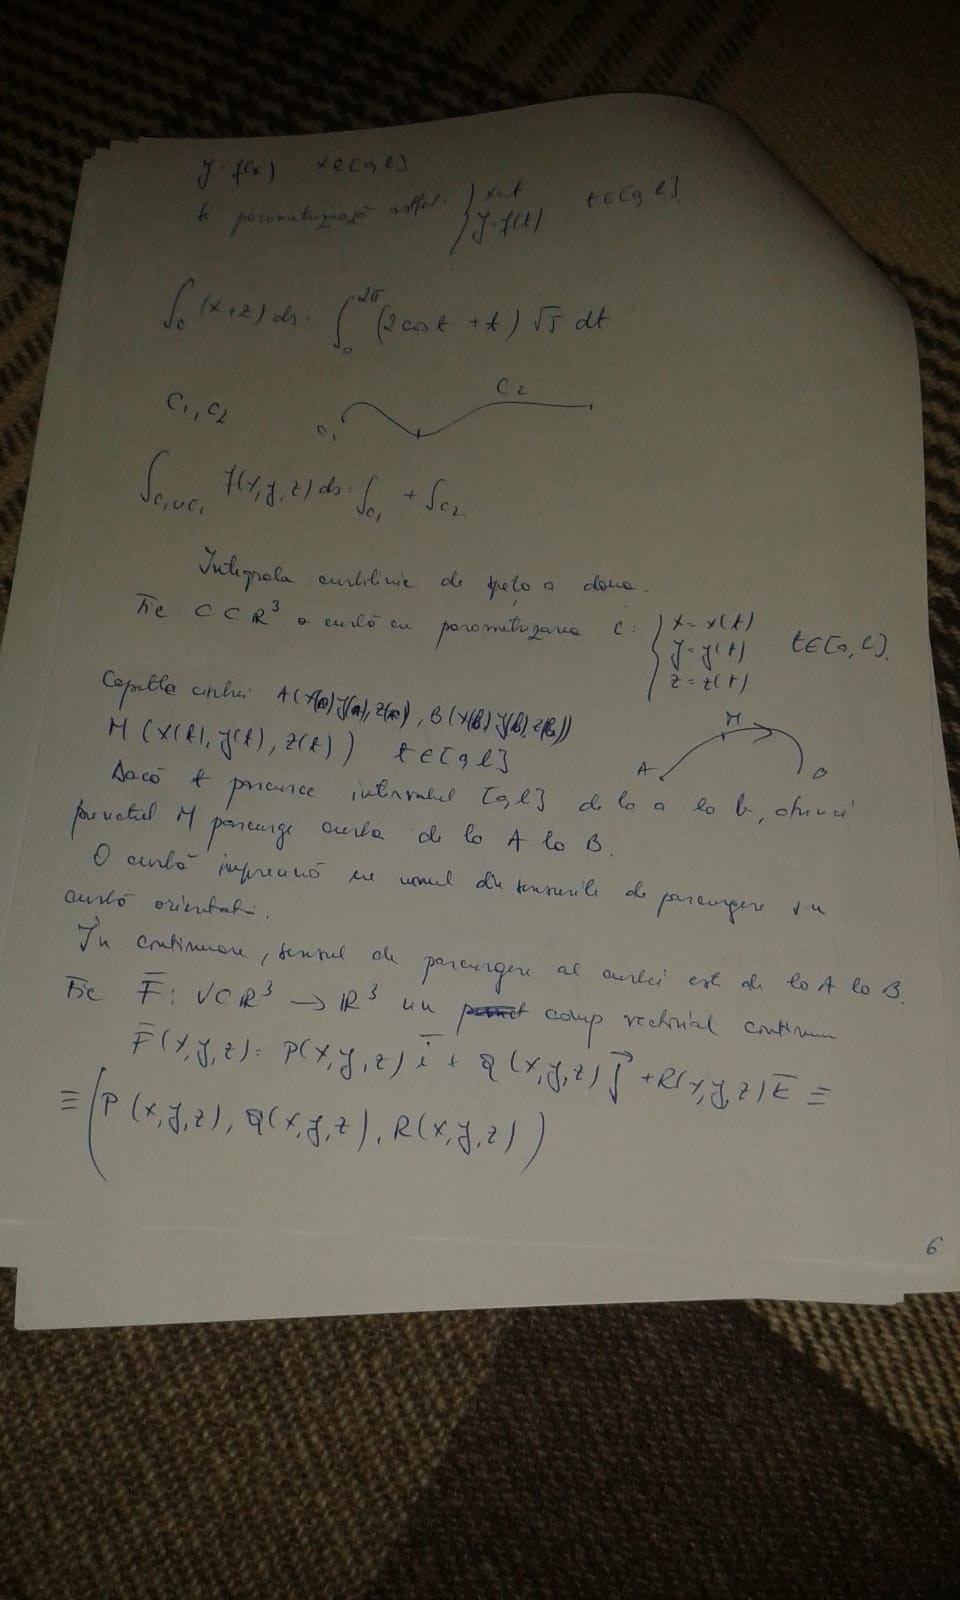 y = f(x) x∈[a,b]
Se parametrizează astfel: { x=t
y=f(t) t∈[a,b]
∫_C (x+z) ds = ∫_0^{2π} (2cost + t) √5 dt
C₁, C₂
C₁ C₂
∫_{C₁∪C₁} f(x,y,z) ds = ∫_{C₁} + ∫_{C₂}
Integrala curbilinie de speța a doua.
Fie C⊂ℝ³ o curbă cu parametrizarea C: { x=x(t)
y=y(t)
z=z(t) t∈[a,b].
Capetele curbei A(x(a),y(a),z(a)), B(x(b),y(b),z(b))
M(x(t), y(t), z(t)) t∈[a,b]
A M B
Dacă t parcurge intervalul [a,b] de la a la b, atunci
punctul M parcurge curba de la A la B.
O curbă împreună cu unul din sensurile de parcurgere s.n.
curbă orientată.
În continuare, sensul de parcurgere al curbei este de la A la B.
Fie F̄: V⊂ℝ³ → ℝ³ un câmp vectorial continuu
F̄(x,y,z) = P(x,y,z) ī + Q(x,y,z) j⃗ + R(x,y,z) k̄ ≡
≡ (P(x,y,z), Q(x,y,z), R(x,y,z))
6